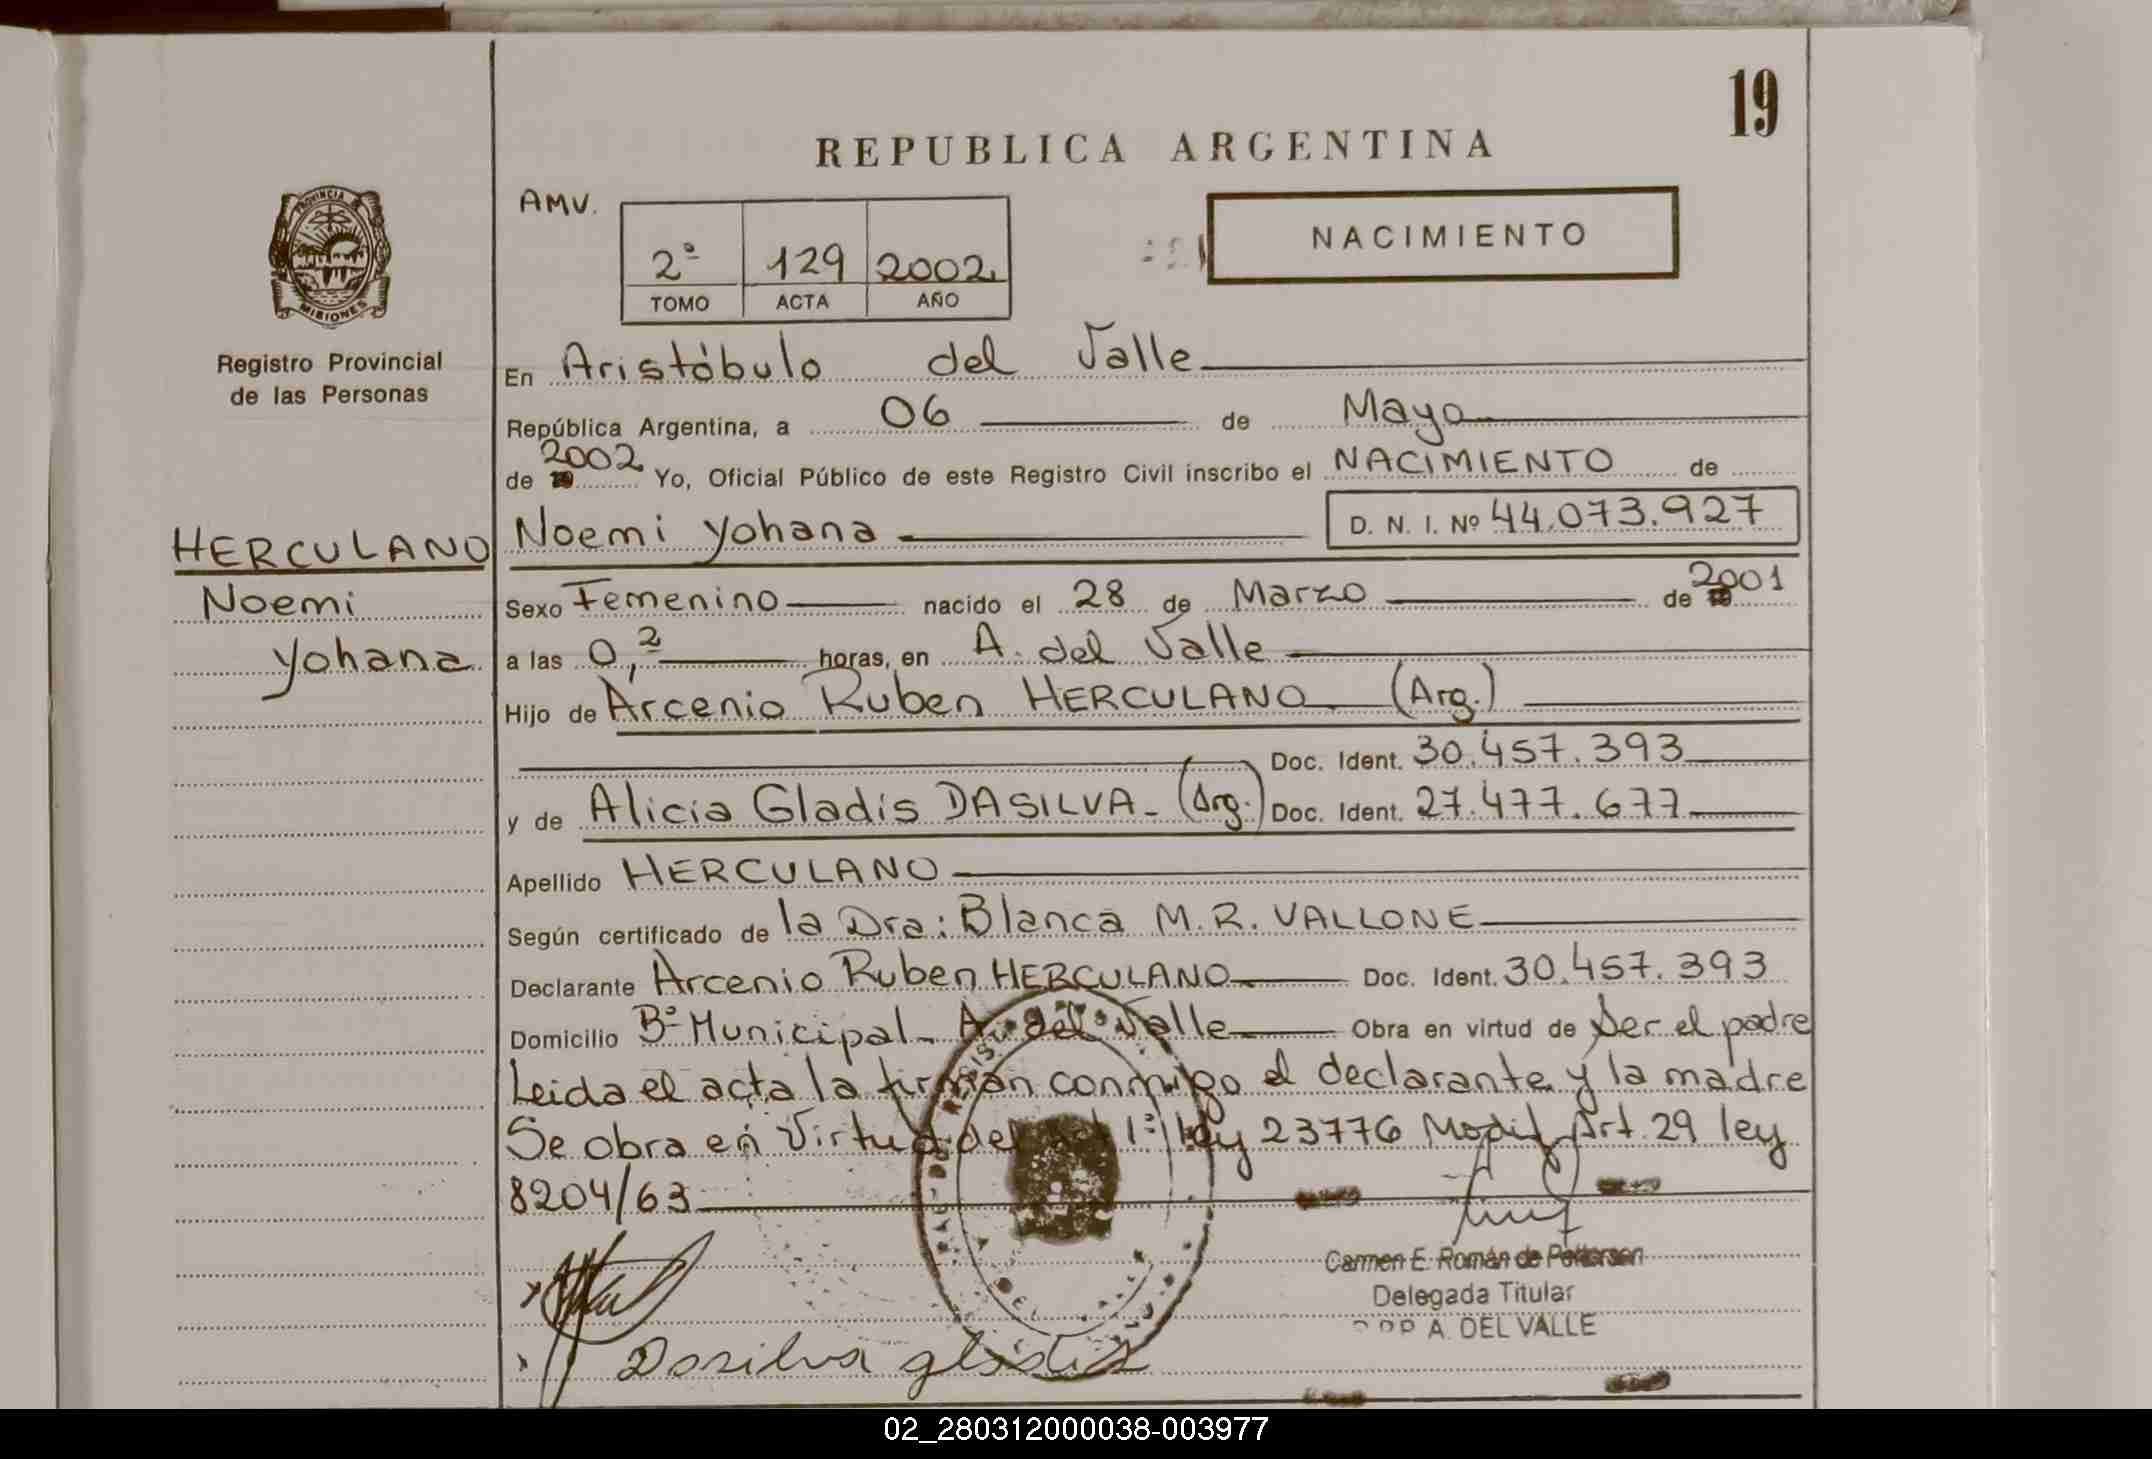 19
REPUBLICA ARGENTINA
AMV.
2º 129 2002
TOMO ACTA AÑO
NACIMIENTO
PROVINCIA
MISIONES
Registro Provincial
de las Personas
HERCULANO
Noemi
Yohana
En Aristóbulo del Valle
República Argentina, a 06 de Mayo
de 2002 Yo, Oficial Público de este Registro Civil inscribo el NACIMIENTO de
Noemi Yohana D. N. I. Nº 44.073.927
Sexo Femenino nacido el 28 de Marzo de 2001
a las 0,2 horas, en A. del Valle
Hijo de Arcenio Ruben HERCULANO (Arg.)
Doc. Ident. 30.457.393
y de Alicia Gladis DASILVA - (Arg.) Doc. Ident. 27.477.677
Apellido HERCULANO
Según certificado de la Dra: Blanca M. R. VALLONE
Declarante Arcenio Ruben HERCULANO Doc. Ident. 30.457.393
Domicilio Bº Municipal - A. del Valle Obra en virtud de Ser el padre
Leida el acta la firman conmigo el declarante y la madre
Se obra en Virtud del art 1º ley 23776 Modif Art. 29 ley
8204/63
Carmen E. Román de
Delegada Titular
A. DEL VALLE
Dasilva gladis
02_280312000038-003977